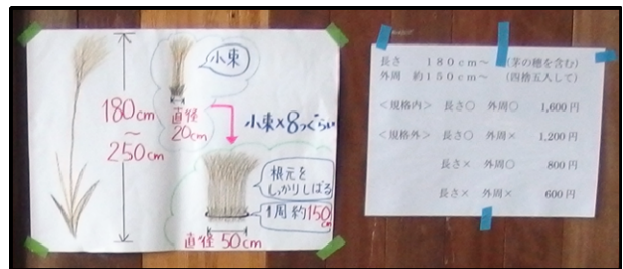 180cm
～
250cm
小束
直径
20cm
小束×8つぐらい
根元を
しっかりしばる
1周約150cm
直径50cm
長さ 180cm～ (茅の穂を含む)
外周 約150cm～ (四捨五入して)
＜規格内＞ 長さ○ 外周○ 1,600円
＜規格外＞ 長さ○ 外周× 1,200円
長さ× 外周○ 800円
長さ× 外周× 600円